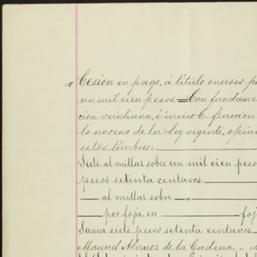 Cesion en pago, á título oneroso p
un mil cien pesos. Con fundame
cion veintiuna, é inciso C. fraccion
lo noveno de la Ley vigente, opin
estos timbres.
Siete al millar sobre un mil cien peso
pesos setenta centavos
al millar sobre
por foja, en foj
Suma siete pesos setenta centavos
Manuel Alvarez de la Cadena.